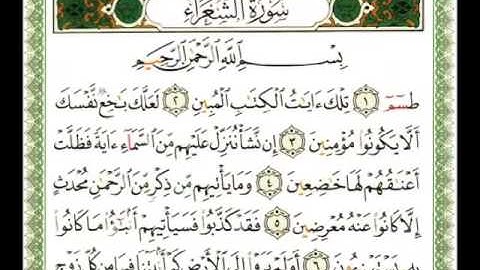 سُورَةُ الشُّعَرَاءِ
بِسْمِ ٱللَّهِ ٱلرَّحْمَٰنِ ٱلرَّحِيمِ
طسٓمٓ ١ تِلْكَ ءَايَٰتُ ٱلْكِتَٰبِ ٱلْمُبِينِ ٢ لَعَلَّكَ بَٰخِعٌ نَّفْسَكَ
أَلَّا يَكُونُوا۟ مُؤْمِنِينَ ٣ إِن نَّشَأْ نُنَزِّلْ عَلَيْهِم مِّنَ ٱلسَّمَآءِ ءَايَةً فَظَلَّتْ
أَعْنَٰقُهُمْ لَهَا خَٰضِعِينَ ٤ وَمَا يَأْتِيهِم مِّن ذِكْرٍ مِّنَ ٱلرَّحْمَٰنِ مُحْدَثٍ
إِلَّا كَانُوا۟ عَنْهُ مُعْرِضِينَ ٥ فَقَدْ كَذَّبُوا۟ فَسَيَأْتِيهِمْ أَنۢبَٰٓؤُا۟ مَا كَانُوا۟
بِهِۦ يَسْتَهْزِءُونَ ٦ أَوَلَمْ يَرَوْا۟ إِلَى ٱلْأَرْضِ كَمْ أَنۢبَتْنَا فِيهَا مِن كُلِّ زَوْجٍ